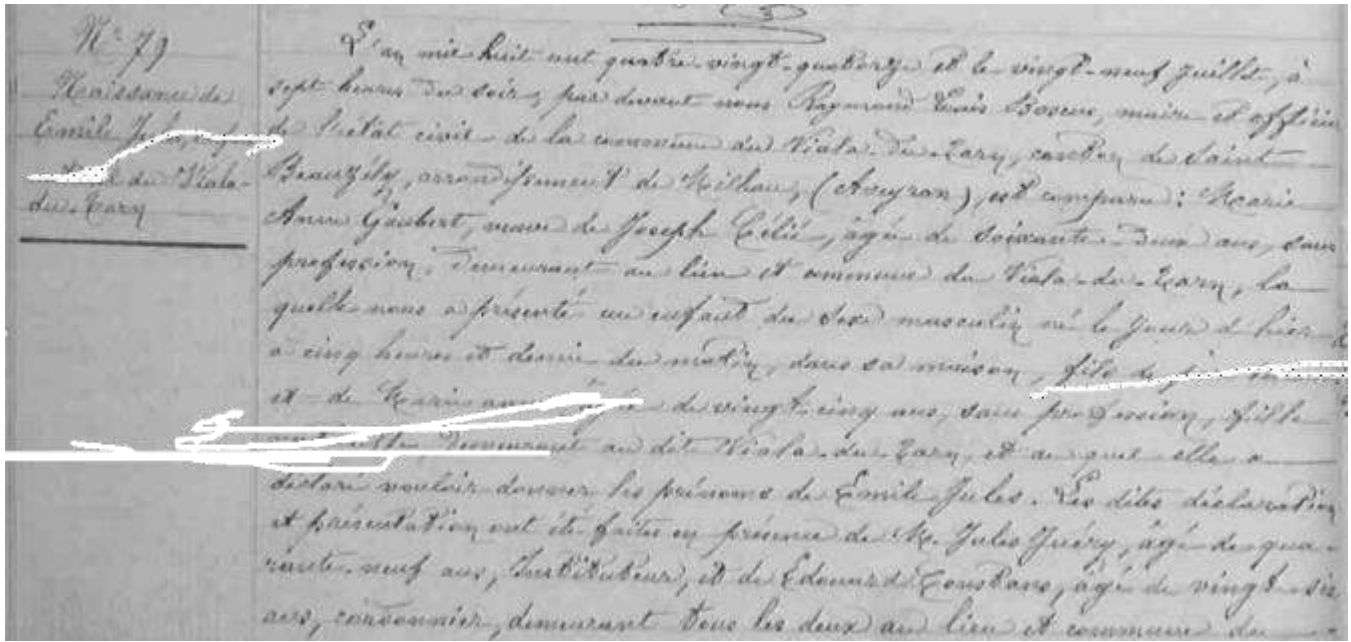 N° 79
Naissance de
Emile Jules,
du Viala-
du-Tarn
L'an mil huit cent quatre-vingt-quatorze et le vingt-neuf juillet, à
sept heures du soir, par devant nous Raymond Louis Boscus, maire et officier
de l'état civil de la commune du Viala-du-Tarn, canton de Saint
Beauzély, arrondissement de Milhau, (Aveyron), est comparu : Marie
Anne Gaubert, veuve de Joseph Célié, âgée de soixante-deux ans, sans
profession, demeurant au lieu et commune du Viala-du-Tarn, la
quelle nous a présenté un enfant du sexe masculin né le jour d'hier
à cinq heures et demie du matin, dans sa maison, fils de
et de Marie âgée de vingt-cinq ans, sans profession, fille
demeurant au dit Viala-du-Tarn, et au quel elle a
déclaré vouloir donner les prénoms de Emile Jules. Les dites déclaration
et présentation ont été faites en présence de M. Jules Juéry, âgé de qua-
rante-neuf ans, Instituteur, et de Edouard Constans, âgé de vingt-six
ans, cordonnier, demeurant tous les deux au lieu et commune du